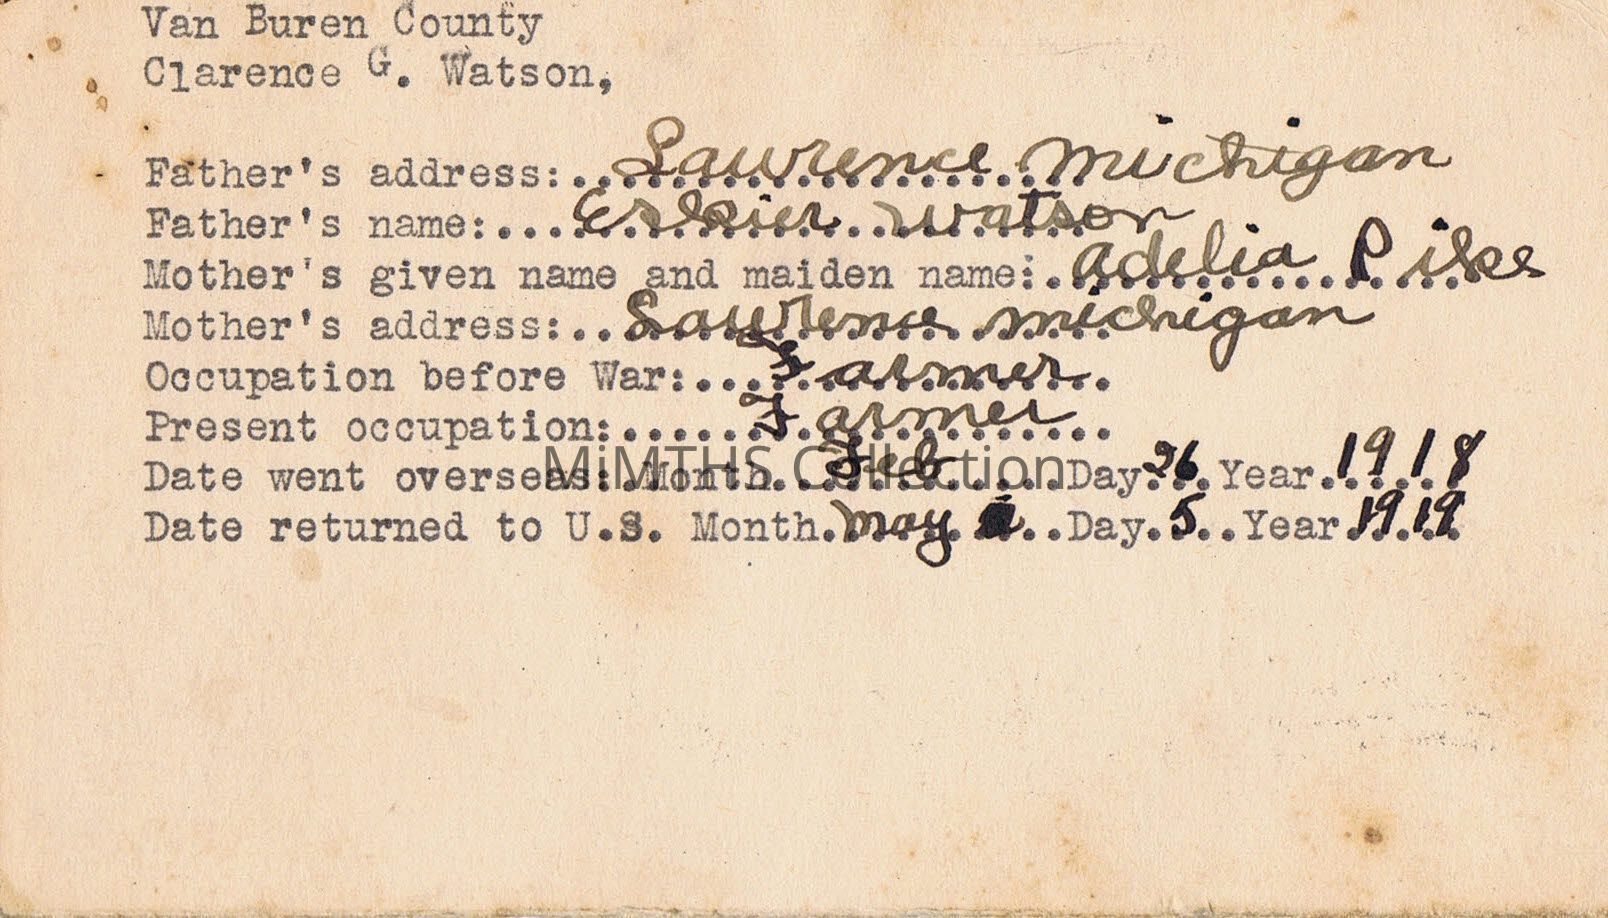 Van Buren County
Clarence G. Watson,
Father's address:..Lawrence Michigan
Father's name:....Watson
Mother's given name and maiden name:.Adelia Pike
Mother's address:..Lawrence Michigan
Occupation before War:...Farmer..
Present occupation:.....Farmer..
Date went overseas:.Month.Feb....Day.26.Year.1918
Date returned to U.S. Month.May...Day.5..Year.1919
MiMTHS Collection